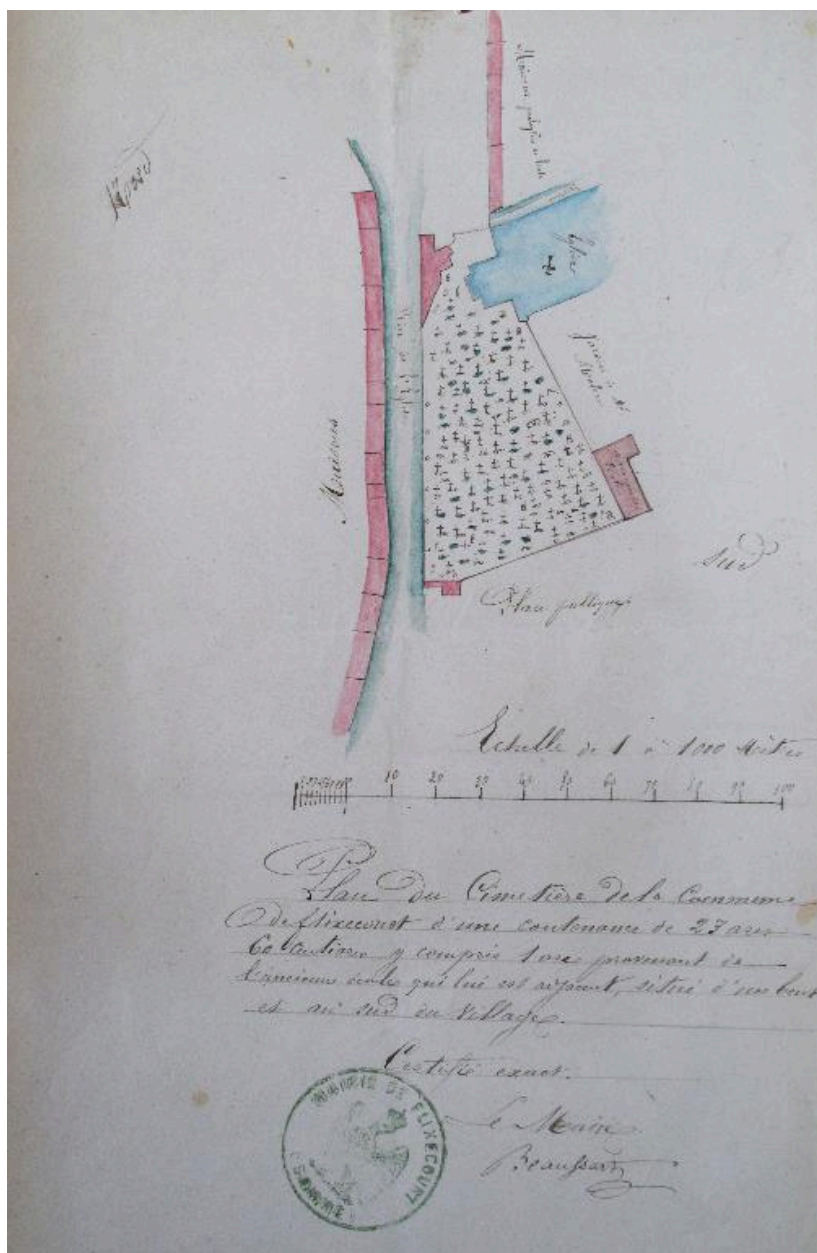 Nord
Eglise
Maisons
Place publique
Sud
Echelle de 1 à 1000 Mètres
10 20 30 40 50 60 70 80 90 100
Plan Du Cimetière de la Commune
De flixecourt d'une contenance de 27 ares
60 centiares y compris 1 are provenant de
l'ancienne école qui lui est adjacent, situé d'un bout
et au sud du Village.
Certifié exact.
Le Maire
Beaussart
MAIRIE DE FLIXECOURT
(SOMME)